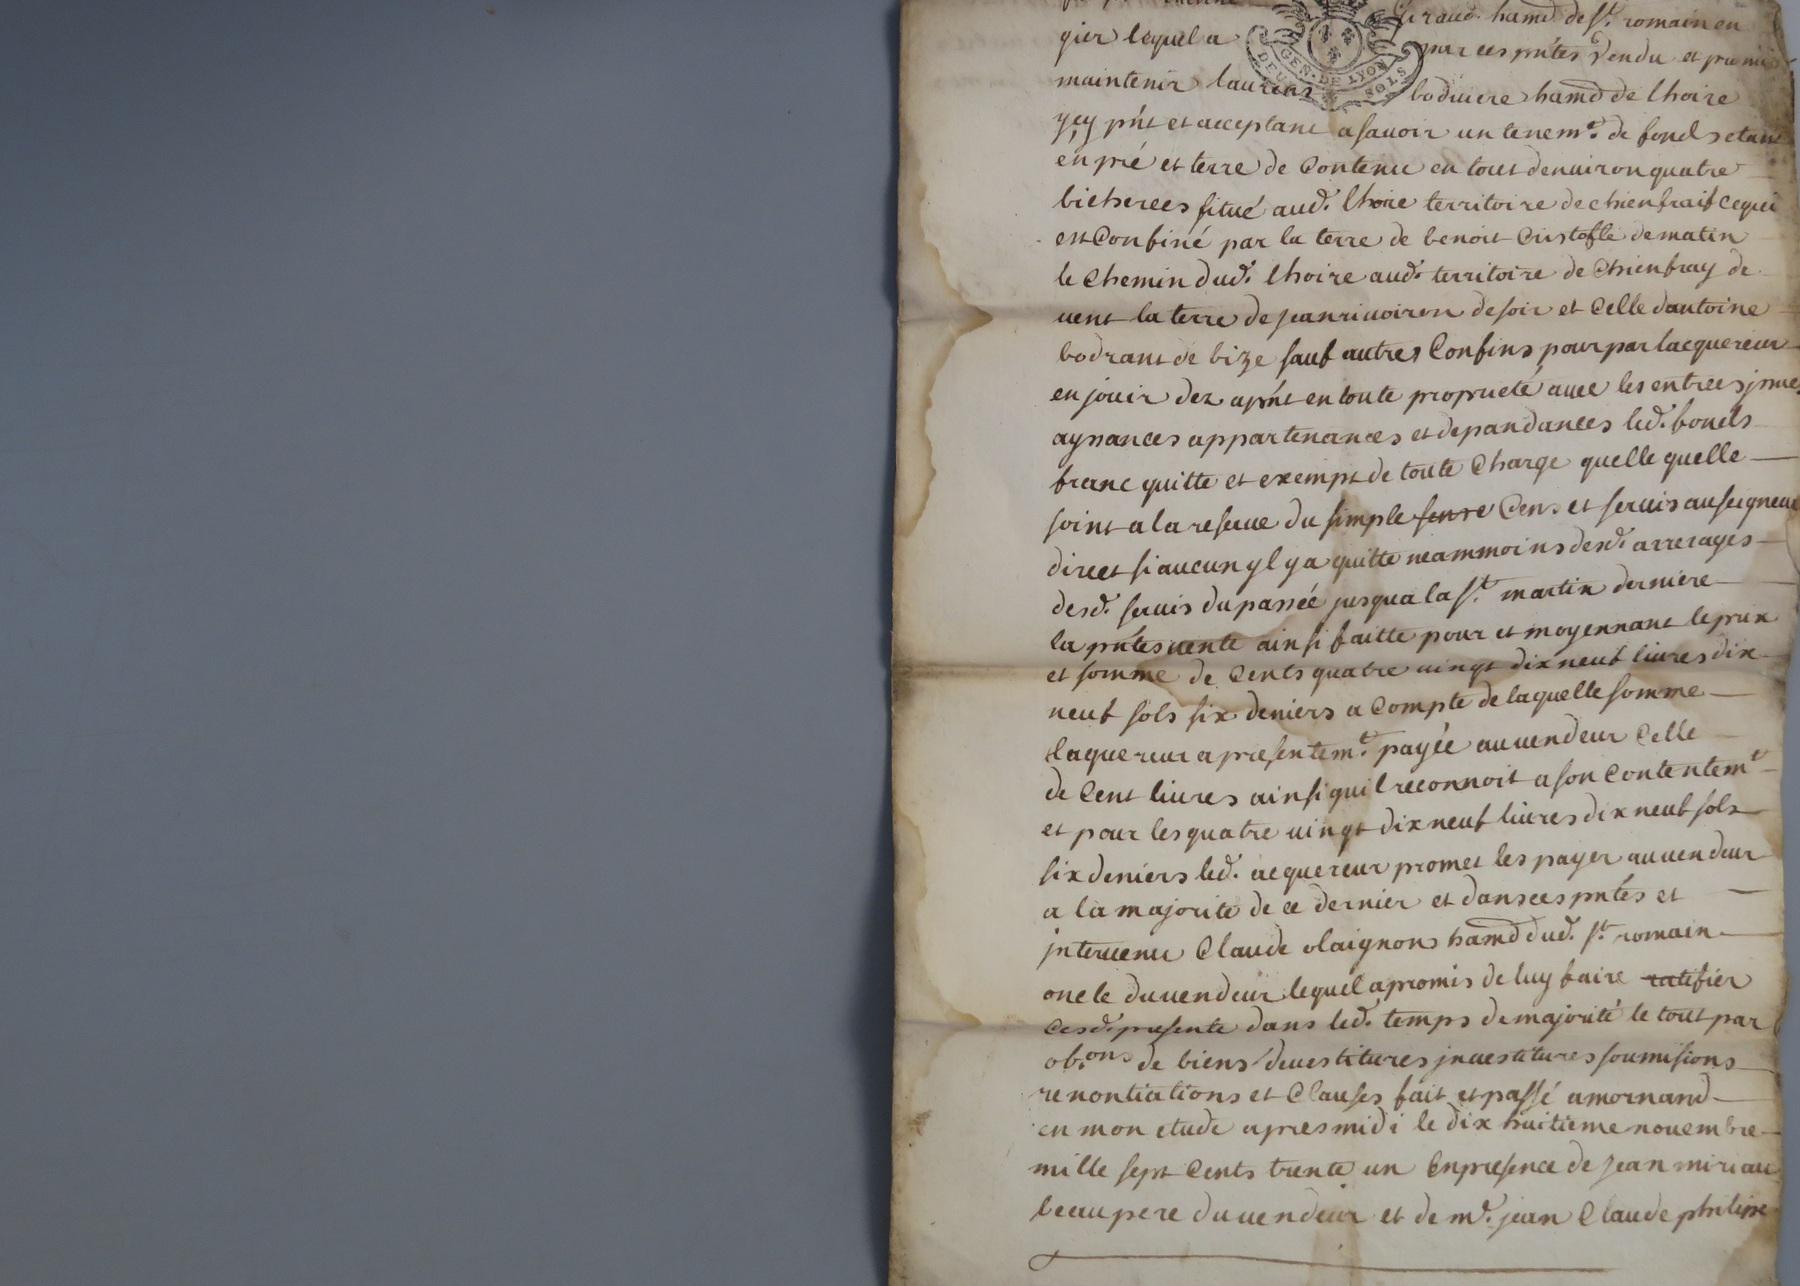 Giraud. hamd de st. romain en
gier lequel a par ces pñtes vendu et promis
GEN. DE LYON
DEUX SOLS
maintenir laurens bodivere hamd de lhoire
ycy pñt et acceptant a savoir un tenemt. de fonds etant
en pré et terre de Contenu en tout denviron quatre
bicherees situé aud. lhoire territoire de chienfrait ce qui
est Confiné par la terre de benoit Cristofle de matin
le Chemin dud. lhoire aud. territoire de Chienfray de
vent la terre de jean rivoiron de soir et Celle dantoine
bodrant de bize sauf autres Confins pour par lacquereur
en jouir dez aprñt en toute proprieté avec les entrees jssues
aysances appartenances et depandances led. fonds
franc quitte et exempt de toute Charge quelle quelle
soint a la reserve du simple sense Cens et servis au seigneur
direct si aucun yl y a quitte neammoins desd. arrerages
desd. servis du passée jusqua la st. martin derniere
la pñtes vente ainsi faitte pour et moyennant le prix
et somme de Cents quatre vingt dix neuf livres dix
neuf sols six deniers a Compte de laquelle somme
laquereur a presentemt. payée au vendeur Celle
de Cent livres ainsi quil reconnoit a son Contentemt
et pour les quatre vingt dix neuf livres dix neuf sols
six deniers led. acquereur promet les payer au vendeur
a la majorite de ce dernier et dans ces pñtes et
jntervenu Claude olaignon hamd dud. st. romain
oncle du vendeur lequel a promis de luy faire ratifier
cesd. presente dans led. temps de majorité le tout par
ob.ons de biens devestitures jnvestitures soumisions
renontiations et Clauses fait et passé a mornand
en mon etude apres midi le dix huitieme novembre
mille sept Cents trente un En presence de jean miriau
beau pere du vendeur et de md. jean Claude philipe